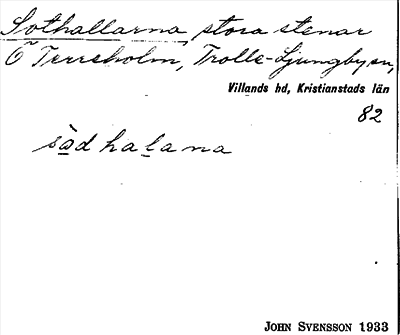 Sothallarna, stora stenar
Ö Terrsholm, Trolle-Ljungby sn,
Villands hd, Kristianstads län
82
sàdhalana
JOHN SVENSSON 1933